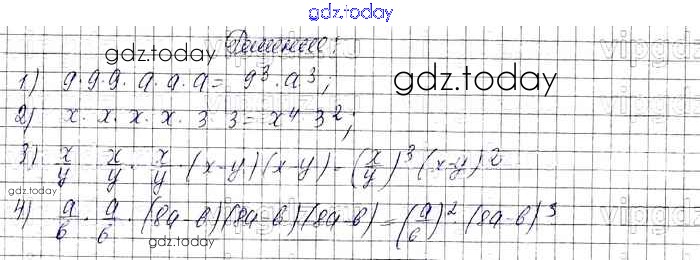 gdz.today
Решение:
gdz.today
1) 9·9·9·a·a·a = 9³·a³;
gdz.today
2) x·x·x·x·3·3 = x⁴ 3²;
3) x/y · x/y · x/y · (x-y)(x-y) = (x/y)³ · (x-y)²
gdz.today
4) a/b · a/b · (8a-b)(8a-b)·(8a-b) = (a/b)² · (8a-b)³
gdz.today